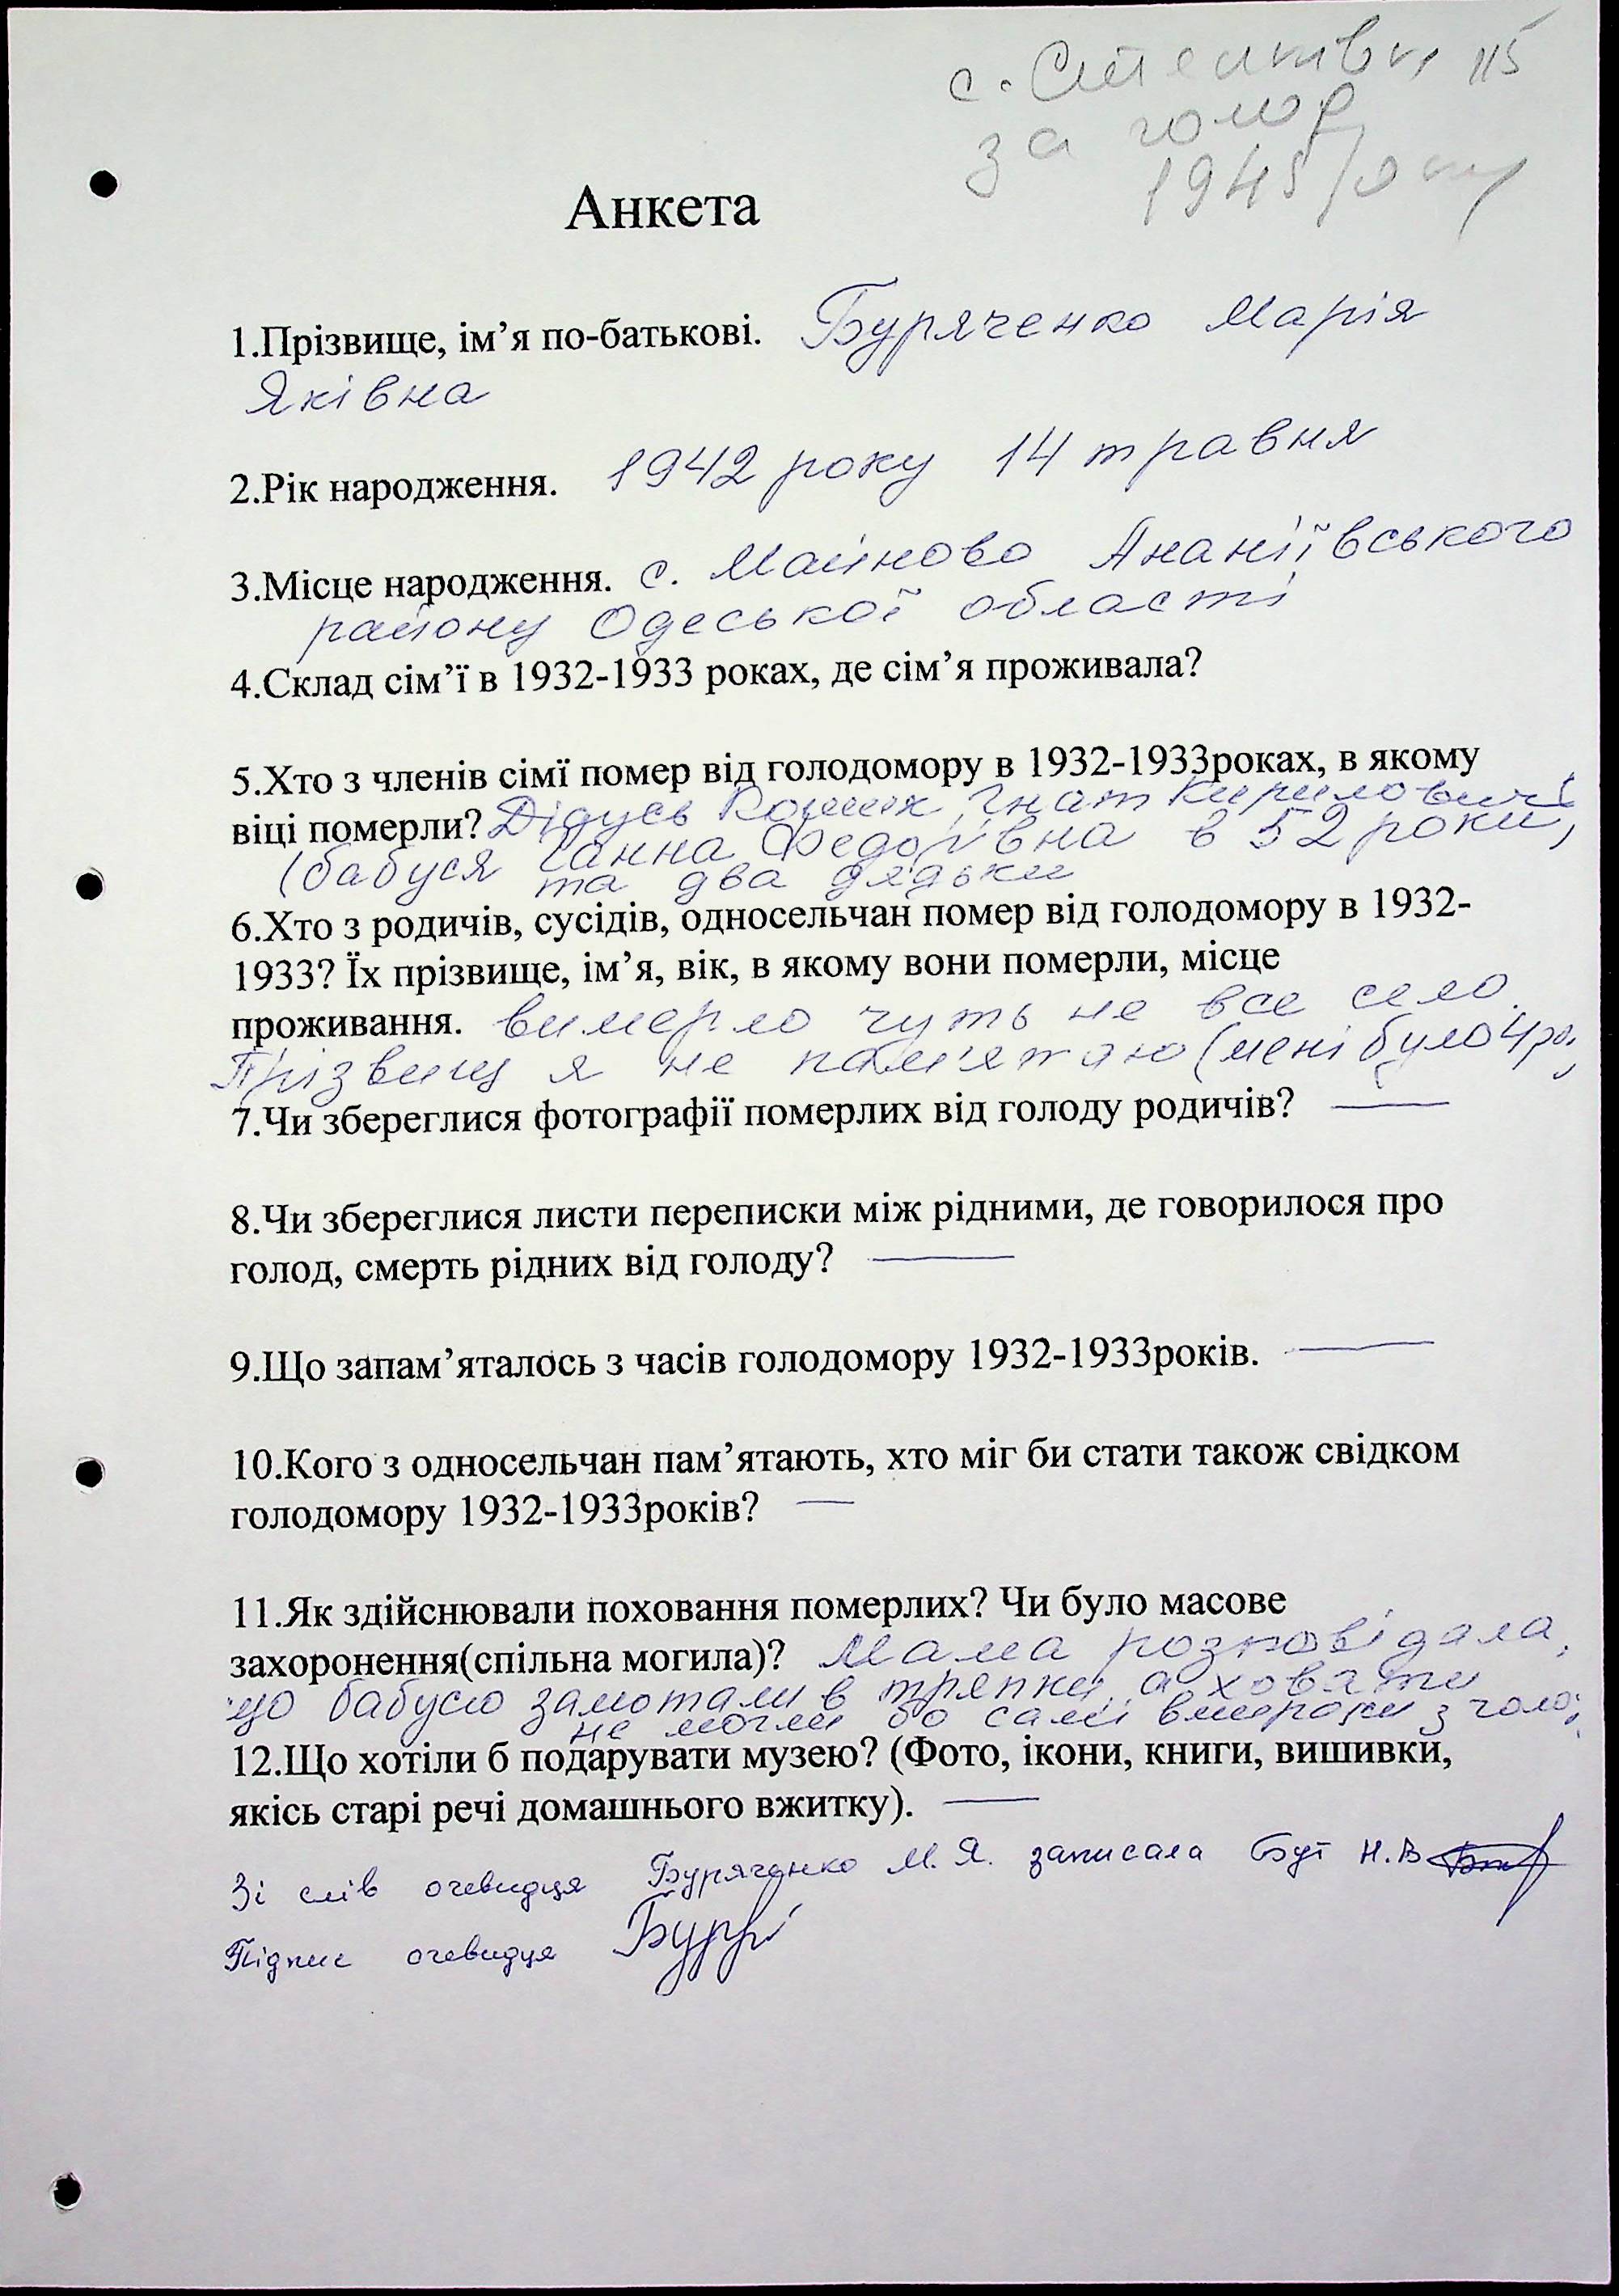 с. Степанівка 115
за голод
1945 року
Анкета
1.Прізвище, ім’я по-батькові. Буряченко Марія
Яківна
2.Рік народження. 1942 року 14 травня
3.Місце народження. с. Майново Ананіївського
району Одеської області
4.Склад сім’ї в 1932-1933 роках, де сім’я проживала?
5.Хто з членів сімї помер від голодомору в 1932-1933роках, в якому
віці померли? Дідусь Гнат Кирилович
(бабуся Ганна Федорівна в 52 роки,
та два дядьки
6.Хто з родичів, сусідів, односельчан помер від голодомору в 1932-
1933? Їх прізвище, ім’я, вік, в якому вони померли, місце
проживання. вимерло чуть не все село.
Прізвищ я не пам'ятаю (мені було 4 р.,
7.Чи збереглися фотографії померлих від голоду родичів? —
8.Чи збереглися листи переписки між рідними, де говорилося про
голод, смерть рідних від голоду? —
9.Що запам’яталось з часів голодомору 1932-1933років. —
10.Кого з односельчан пам’ятають, хто міг би стати також свідком
голодомору 1932-1933років? —
11.Як здійснювали поховання померлих? Чи було масове
захоронення(спільна могила)? Мама розповідала,
що бабусю замотали в тряпки, а ховати
не могли бо самі вмирали з голо,
12.Що хотіли б подарувати музею? (Фото, ікони, книги, вишивки,
якісь старі речі домашнього вжитку). —
Зі слів очевидця Буряченко М.Я. записала Бут Н.В
Підпис очевидця